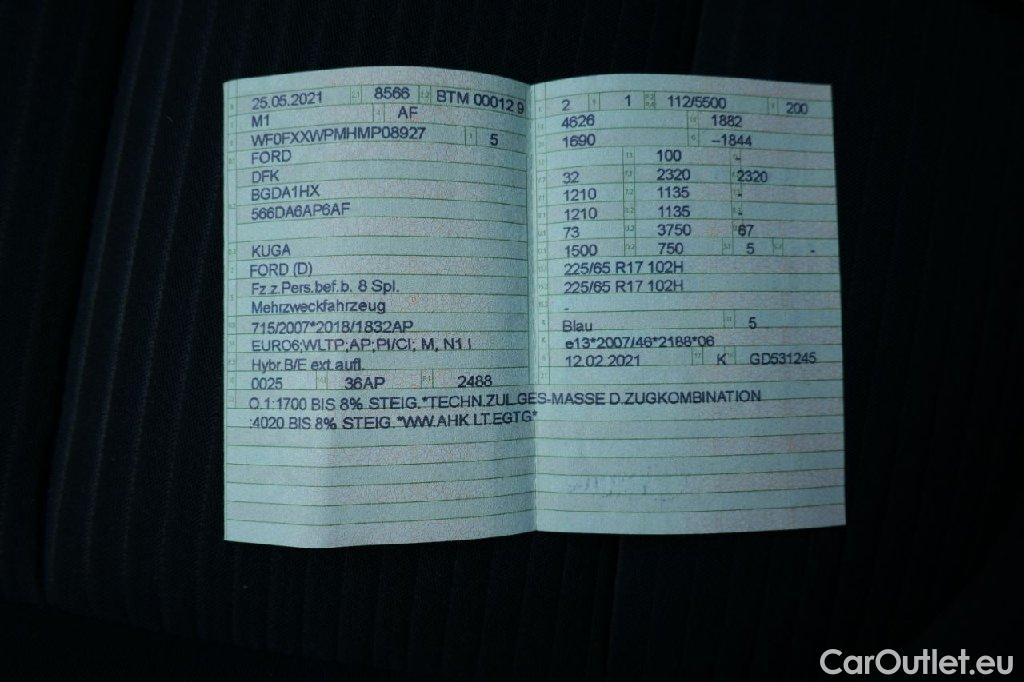 25.05.2021 8566 BTM 00012 9
M1 AF
WF0FXXWPMHMP08927 5
FORD
DFK
BGDA1HX
566DA6AP6AF
KUGA
FORD (D)
Fz.z.Pers.bef.b. 8 Spl.
Mehrzweckfahrzeug
715/2007*2018/1832AP
EURO6;WLTP;AP;PI/CI; M, N1 I
Hybr.B/E ext.aufl.
0025 36AP 2488
O.1:1700 BIS 8% STEIG.*TECHN.ZUL.GES-MASSE D.ZUGKOMBINATION
:4020 BIS 8% STEIG.*WW.AHK LT.EGTG*
2 1 112/5500 200
4626 1882
1690 –1844
100 -
32 2320 2320
1210 1135 -
1210 1135 -
73 3750 67
1500 750 5 -
225/65 R17 102H
225/65 R17 102H
-
Blau 5
e13*2007/46*2188*06
12.02.2021 K GD531245
CarOutlet.eu